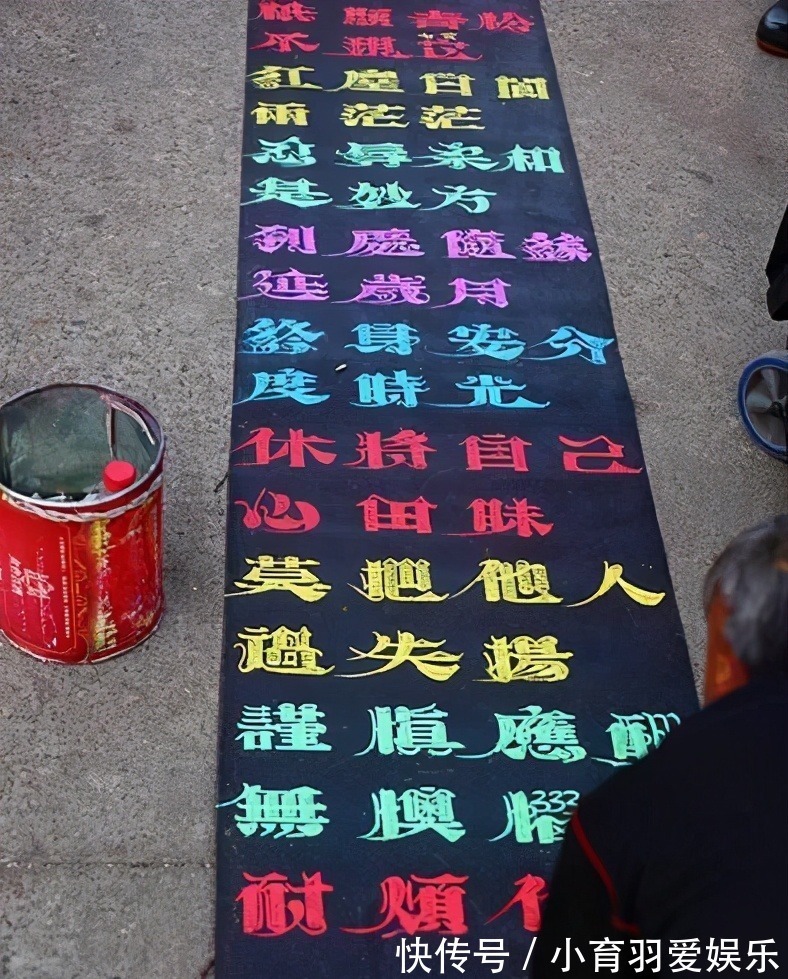 紅塵
兩茫茫
忍辱柔和
是妙方
到處隨緣
延歲月
終身安分
度時光
休將自己
心田昧
莫把他人
過失揚
謹慎應酬
無懊惱
耐煩
快传号/小育羽爱娱乐